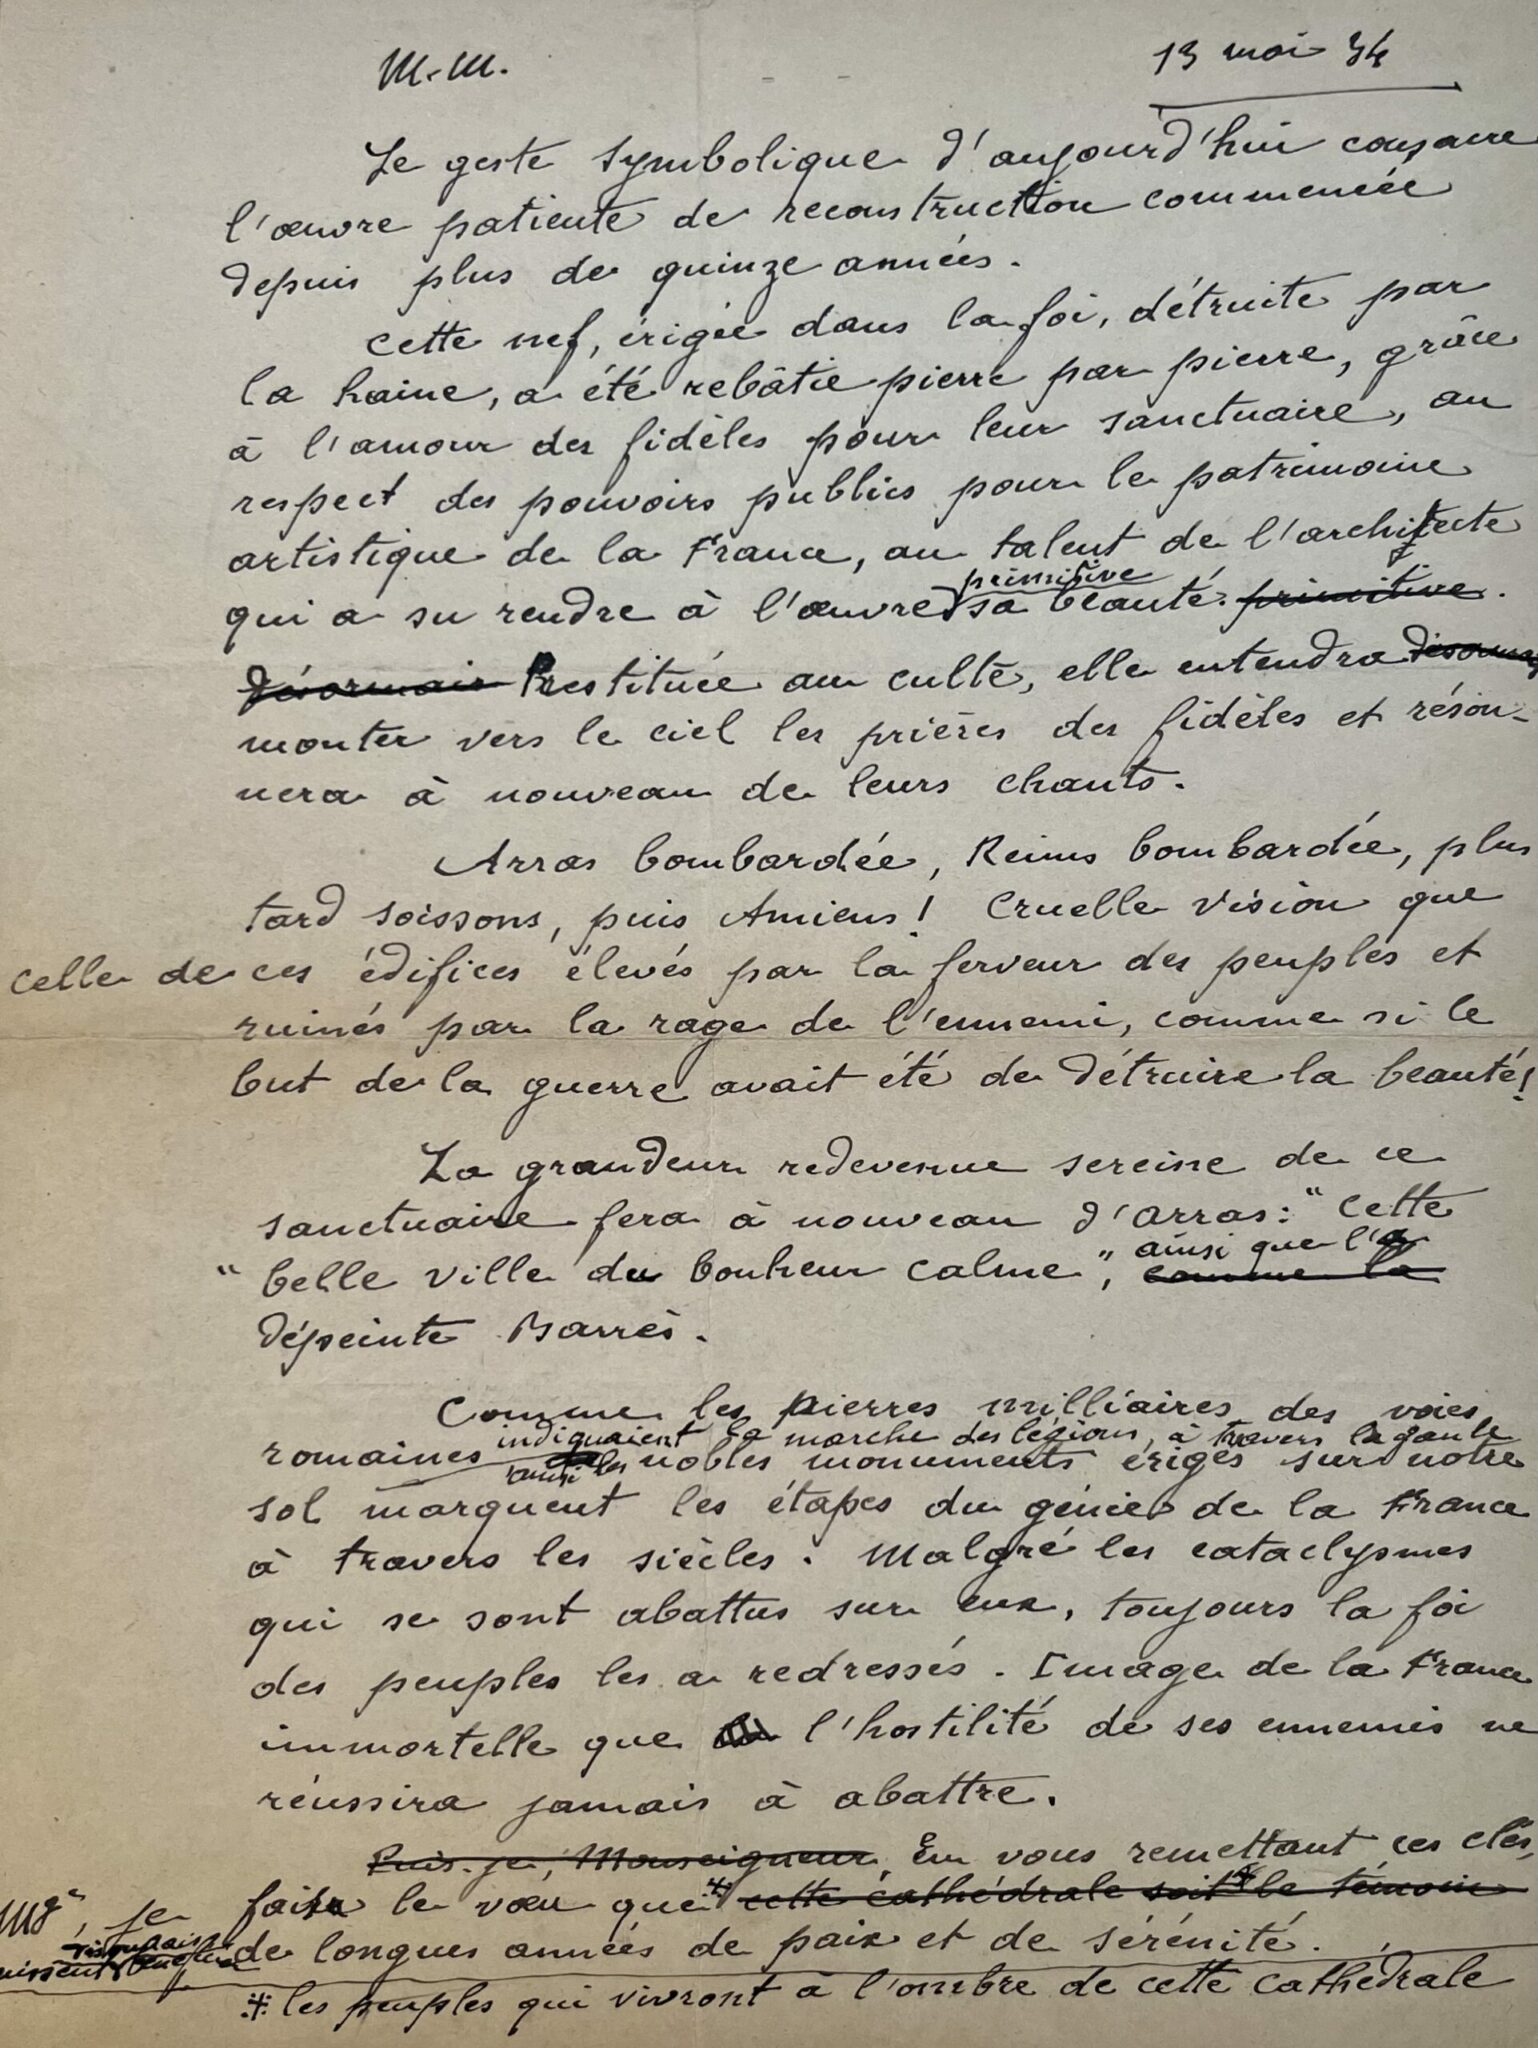 M.M.
13 mai 34
Le geste symbolique d'aujourd'hui consacre
l'œuvre patiente de reconstruction commencée
depuis plus de quinze années.
Cette nef, érigée dans la foi, détruite par
la haine, a été rebâtie pierre par pierre, grâce
à l'amour des fidèles pour leur sanctuaire, au
respect des pouvoirs publics pour le patrimoine
artistique de la France, au talent de l'architecte
primitive
qui a su rendre à l'œuvre sa beauté primitive.
Désormais Restituée au culte, elle entendra désormais
monter vers le ciel les prières des fidèles et réson-
nera à nouveau de leurs chants.
Arras bombardée, Reims bombardée, plus
tard Soissons, puis Amiens ! Cruelle vision que
celle de ces édifices élevés par la ferveur des peuples et
ruinés par la rage de l'ennemi, comme si le
but de la guerre avait été de détruire la beauté !
La grandeur redevenue sereine de ce
sanctuaire fera à nouveau d'Arras : " Cette
ainsi que l'a
" belle ville du bonheur calme ", comme la
dépeinte Barrès.
Comme les pierres milliaires des voies
indiquaient la marche des légions, à travers la gaule
romaines ainsi les nobles monuments érigés sur notre
sol marquent les étapes du génie de la France
à travers les siècles. Malgré les cataclysmes
qui se sont abattus sur eux, toujours la foi
des peuples les a redressés. Image de la France
immortelle que l'hostilité de ses ennemis ne
réussira jamais à abattre.
Puis-je, Monseigneur, En vous remettant ces clés,
Mgr, je fais le vœu que * cette cathédrale soit le témoin
de longues années de paix et de sérénité.
* les peuples qui vivront à l'ombre de cette cathédrale